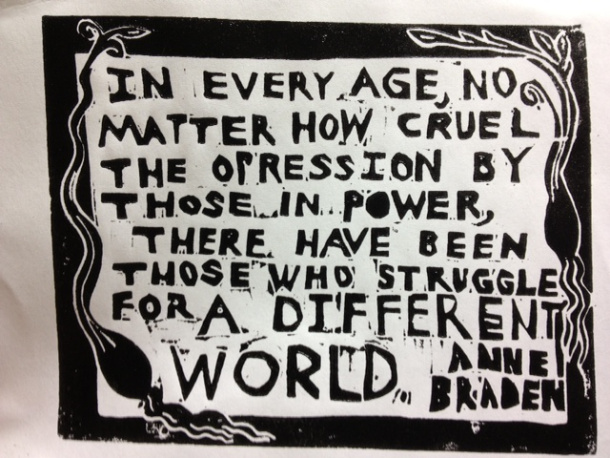 IN EVERY AGE, NO
MATTER HOW CRUEL
THE OPRESSION BY
THOSE IN POWER,
THERE HAVE BEEN
THOSE WHO STRUGGLE
FOR A DIFFERENT
WORLD.
ANNE
BRADEN